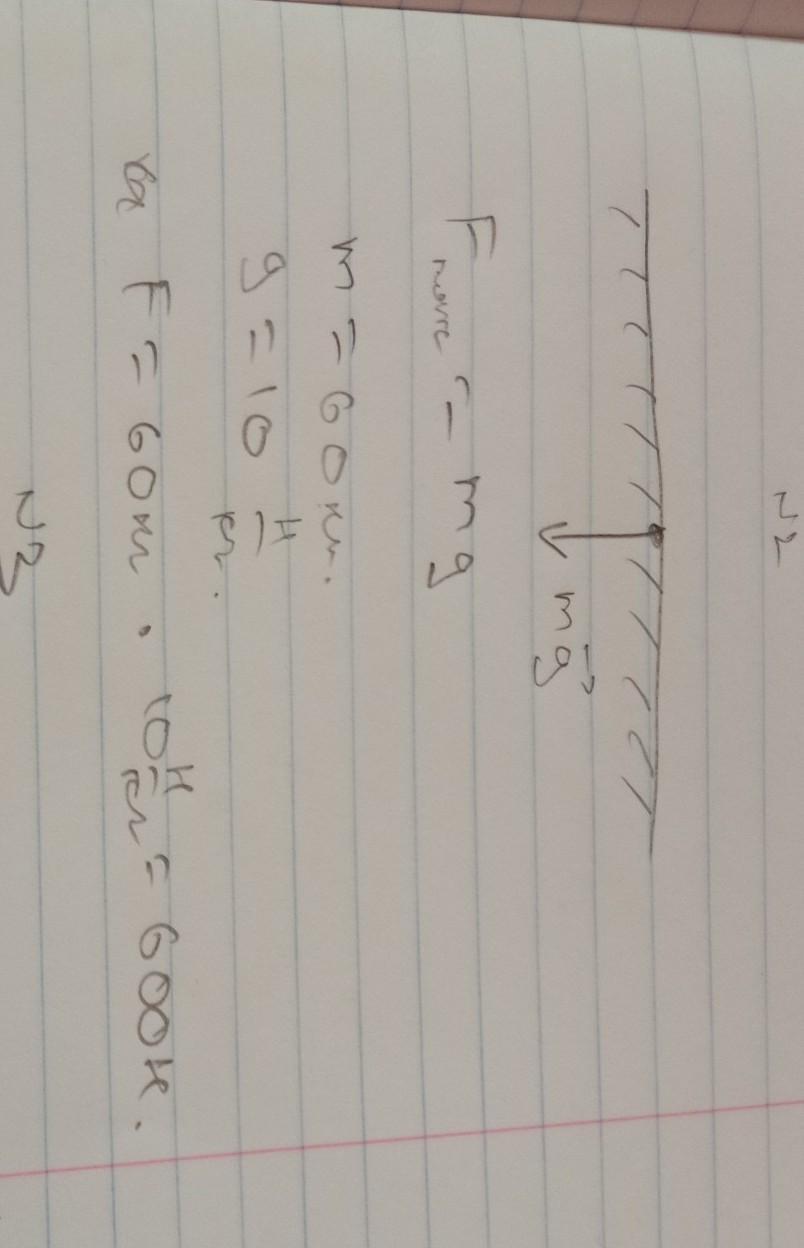 N2
mg⃗
Fтяж = mg
m = 60 кг.
g = 10 Н/кг.
F = 60 кг · 10 Н/кг = 600 Н.
N3